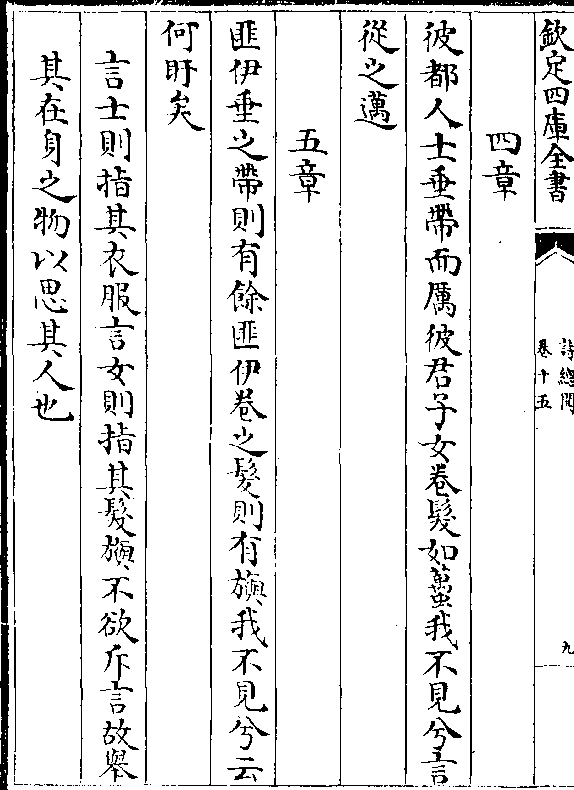 欽定四庫全書
詩總聞
卷十五
九
四章
彼都人士垂帶而厲彼君子女卷髮如蠆我不見兮言
從之邁
五章
匪伊垂之帶則有餘匪伊卷之髮則有旟我不見兮云
何盱矣
言士則指其衣服言女則指其髮旟不欲斥言故舉
其在身之物以思其人也